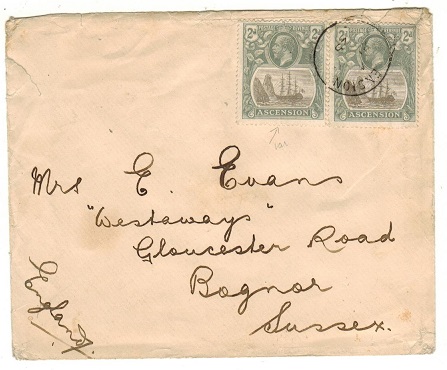 2d 2d 2d
POSTAGE & REVENUE
ASCENSION ASCENSION
Mrs E. Evans
"Westaways"
Gloucester Road
Bognor
Sussex.
England.